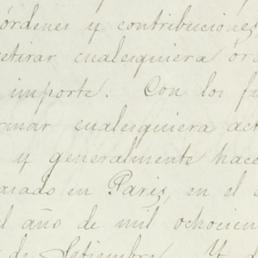 órdenes y contribuciones
retirar cualesquiera
importe. Con los
cualesquiera
y generalmente hace
en Paris, en el
año de mil ochocien
de Setiembre. Y